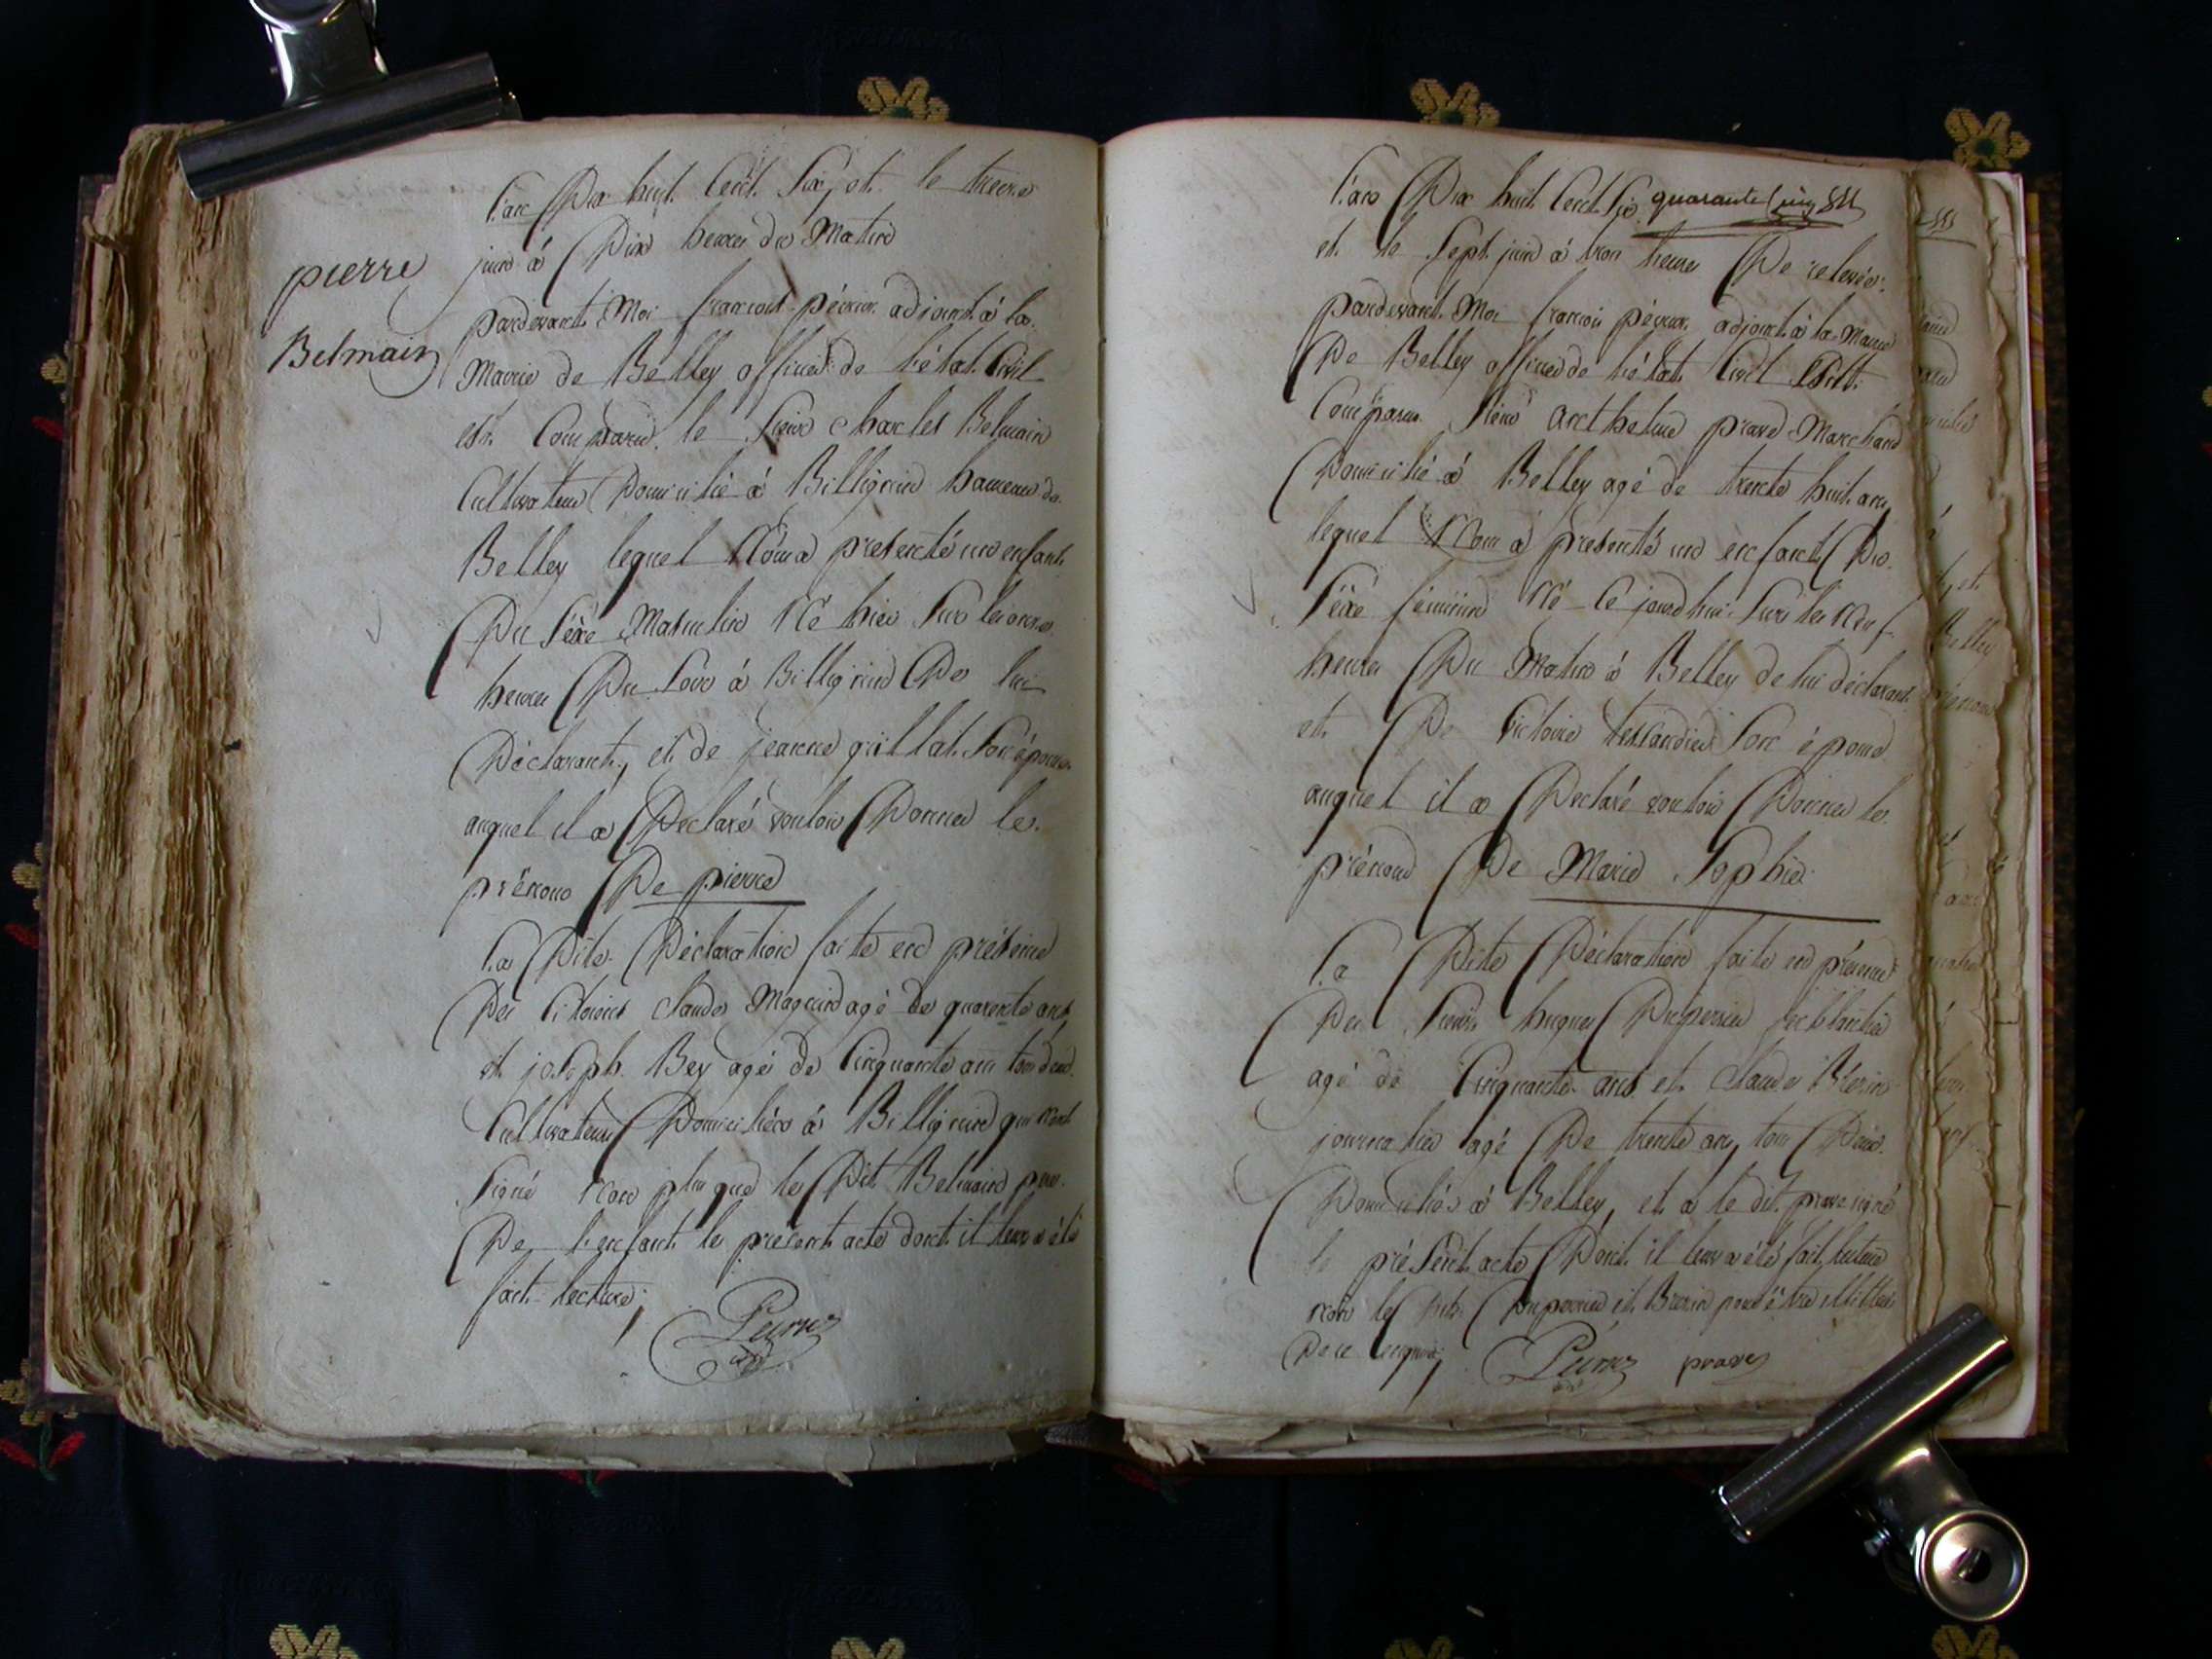 pierre
Belmain
l'an Dix huit Cent Six, et le treize
juin à Dix heures du Matin
pardevant Moi francois pévrier adjoint à la
Mairie de Belley officier de l'état Civil
est Comparu le Sieur Charles Belmain
Cultivateur Domicilié à Billignin hameau de
Belley lequel Nous a presenté un enfant
Du Séxe Masculin Né hier Sur les onze
heures Du Soir à Billignin De lui
Déclarant, et de jeanne grillat Son épouse
auquel il a Declaré vouloir Donner le
prénom De pierre
La Dite Déclaration faite en présence
Des Citoiens claude Magnin agé de quarente ans
et joseph Bey agé de Cinquante ans tous deux
Cultivateurs Domiciliés à Billignin qui n'ont
Signé Non plus que le Dit Belmain pere
De l'enfant le présent acte dont il leur a été
fait lecture
l'an Dix huit Cent Six quarante cinq
et le Sept juin à trois heures De relevée
pardevant Moi francois pévrier adjoint à la Mairie
De Belley officier de l'état Civil Est
Comparu Sieur anthelme prave Marchand
Domicilié à Belley agé de trente huit ans
lequel Nous a presenté un enfant Du
Séxe féminin Né Ce jourd'hui Sur les Neuf
heures Du Matin à Belley de lui déclarant
et De Victoire Son épouse
auquel il a Declaré vouloir Donner le
prénom De Marie Sophie
La Dite Déclaration faite en présence
Des Sieurs hugues Duperrier ferblantier
agé de Cinquante ans et Claude Brezin
journalier agé De trente ans, tous Deux
Domiciliés à Belley, et a le dit prave signé
le présent acte Dont il leur a été fait lecture
non les Duperrier et Brezin pour être illitérés
De ce enquis,
prave